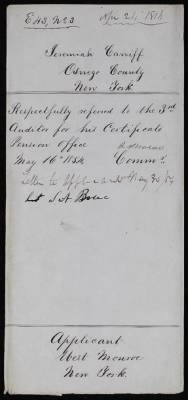 Jeremiah Carriff
Oswego County
New York
Respectfully referred to the 3rd
Auditor for his Certificate
Pension Office
May 16th 1854 Commr
Letter to Applicant May 30/54
Applicant
West Monroe
New York.